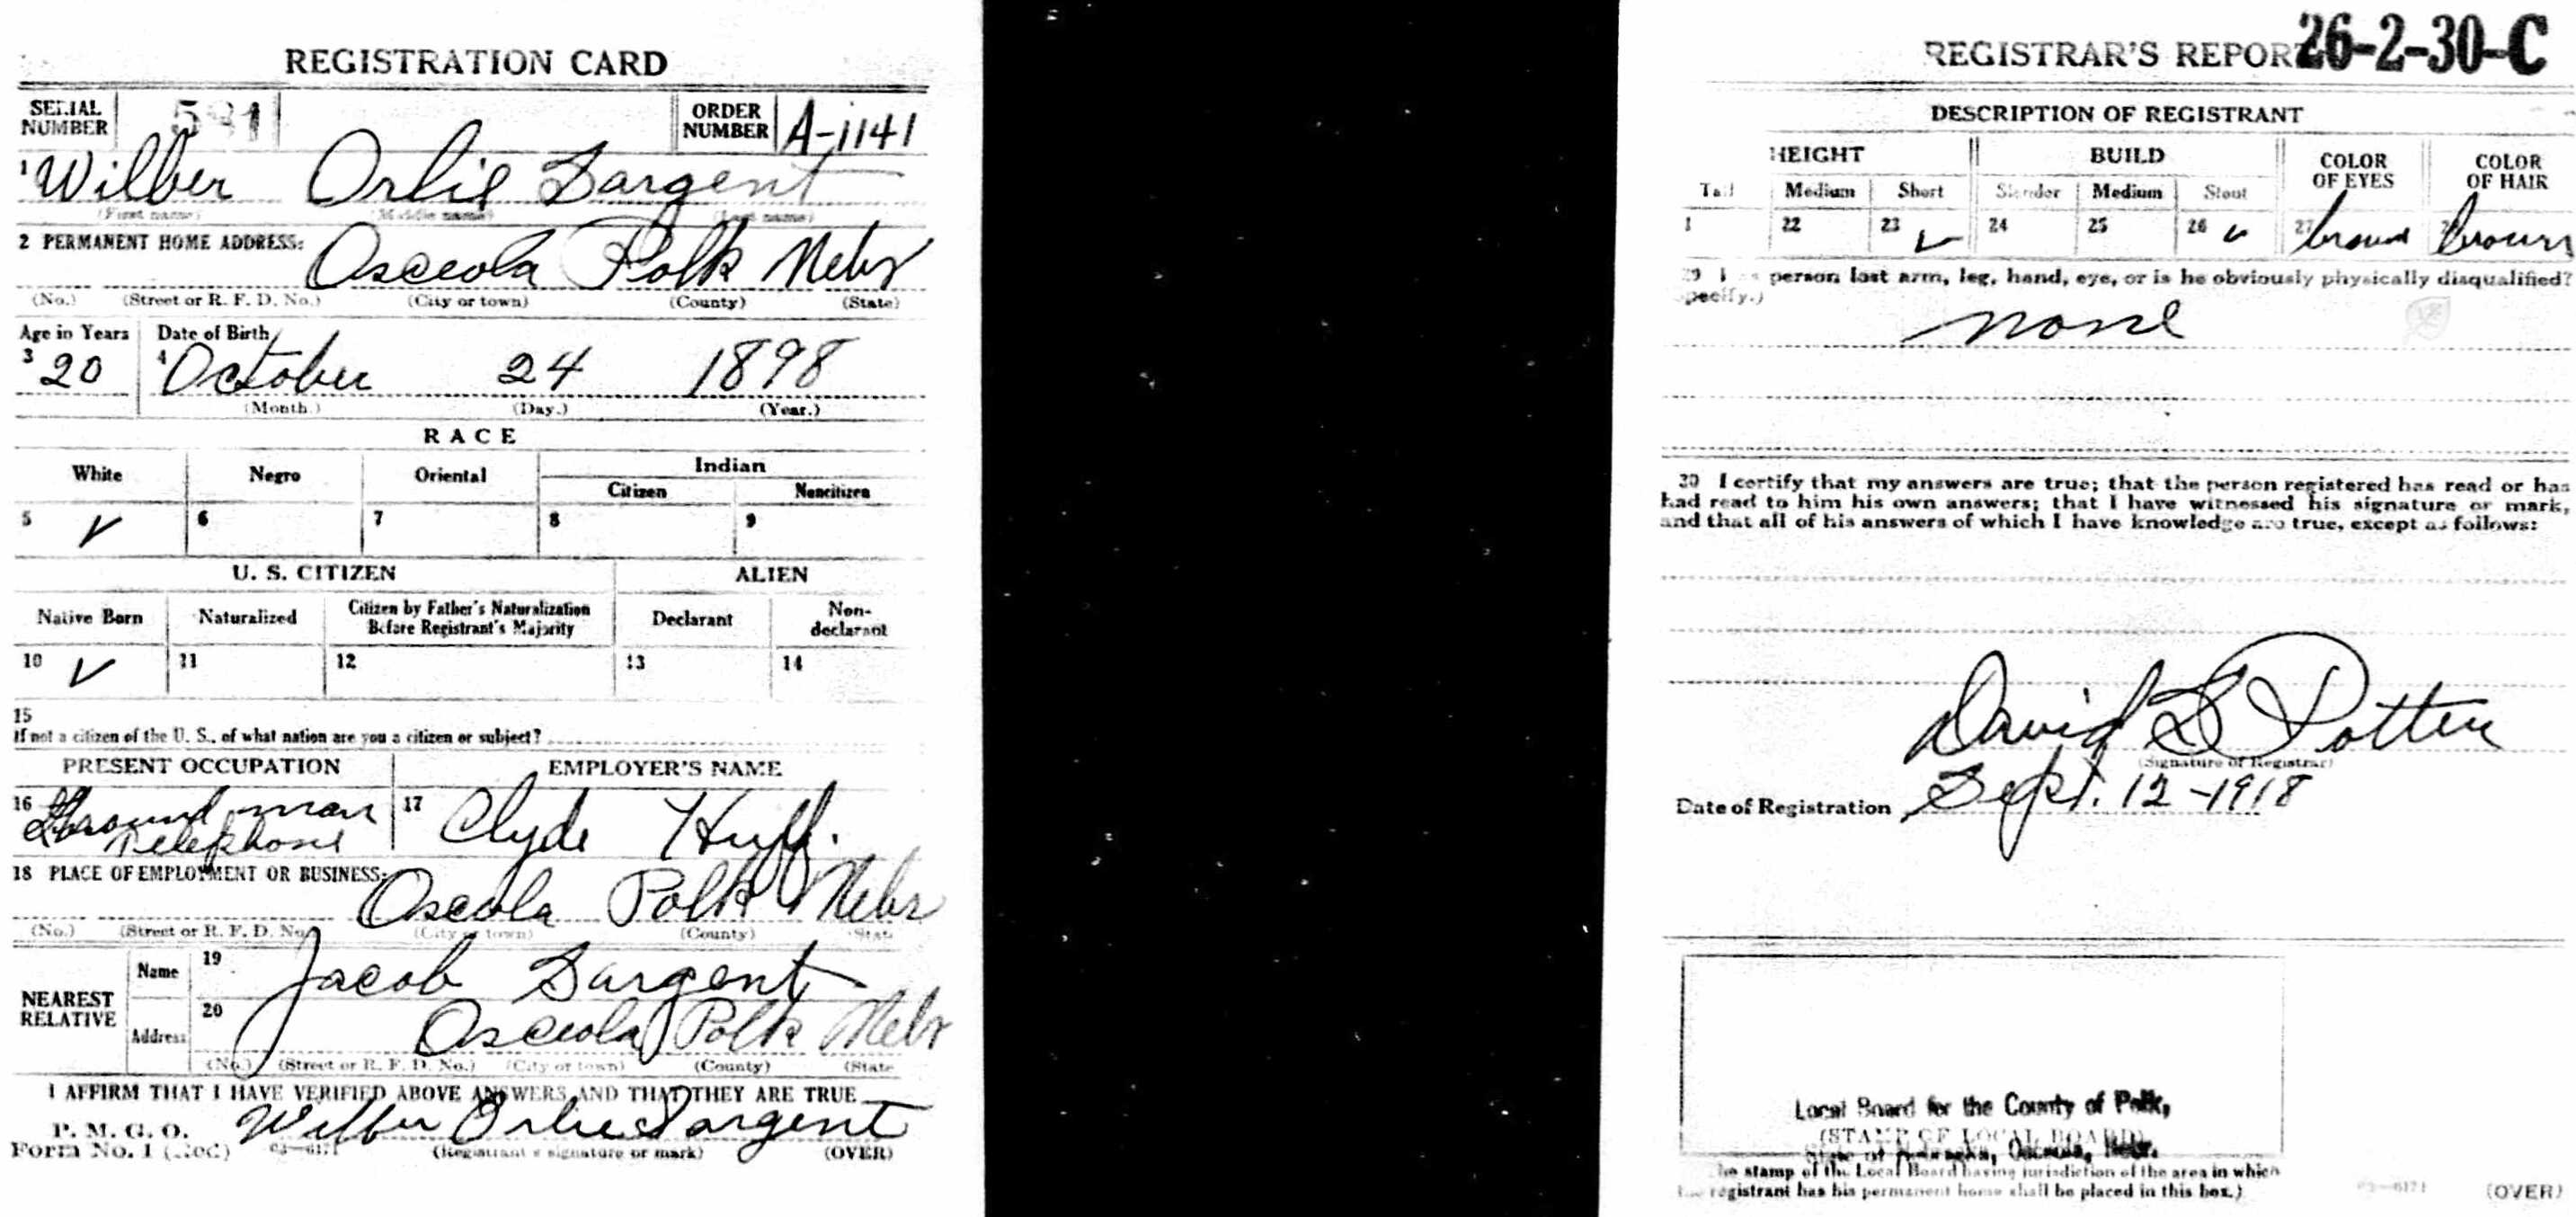 REGISTRATION CARD
SERIAL NUMBER 5 1 ORDER NUMBER A-1141
1 Wilber Orlie Sargent
(First name) (Middle name) (Last name)
2 PERMANENT HOME ADDRESS: Osceola Polk Nebr
(No.) (Street or R. F. D. No.) (City or town) (County) (State)
Age in Years Date of Birth
3 20 4 October 24 1898
(Month.) (Day.) (Year.)
RACE
White Negro Oriental Indian
Citizen Noncitizen
5 ✓ 6 7 8 9
U. S. CITIZEN ALIEN
Native Born Naturalized Citizen by Father's Naturalization Before Registrant's Majority Declarant Non-declarant
10 ✓ 11 12 13 14
15
If not a citizen of the U. S., of what nation are you a citizen or subject?
PRESENT OCCUPATION EMPLOYER'S NAME
16 Ground man Telephone 17 Clyde Huff.
18 PLACE OF EMPLOYMENT OR BUSINESS: Osceola Polk Nebr
(No.) (Street or R. F. D. No.) (City or town) (County) (State
NEAREST RELATIVE
Name 19 Jacob Sargent
Address 20 Osceola Polk Nebr
(No.) (Street or R. F. D. No.) (City or town) (County) (State
I AFFIRM THAT I HAVE VERIFIED ABOVE ANSWERS AND THAT THEY ARE TRUE
P. M. G. O.
Form No. 1 (Red) 03—6171 Wilber Orlie Sargent
(Registrant's signature or mark) (OVER)
REGISTRAR'S REPORT 26-2-30-C
DESCRIPTION OF REGISTRANT
HEIGHT BUILD COLOR OF EYES COLOR OF HAIR
Tall Medium Short Slender Medium Stout
1 22 23 ✓ 24 25 26 ✓ 27 brown brown
29 person lost arm, leg, hand, eye, or is he obviously physically disqualified?
pecify.)
none
30 I certify that my answers are true; that the person registered has read or has
had read to him his own answers; that I have witnessed his signature or mark,
and that all of his answers of which I have knowledge are true, except as follows:
David S Potter
(Signature of Registrar)
Date of Registration Sept. 12-1918
Local Board for the County of Polk,
(STAMP OF LOCAL BOARD)
State of Nebraska, Osceola, Nebr.
he stamp of the Local Board having jurisdiction of the area in which
the registrant has his permanent home shall be placed in this box.)
03—6171 (OVER)